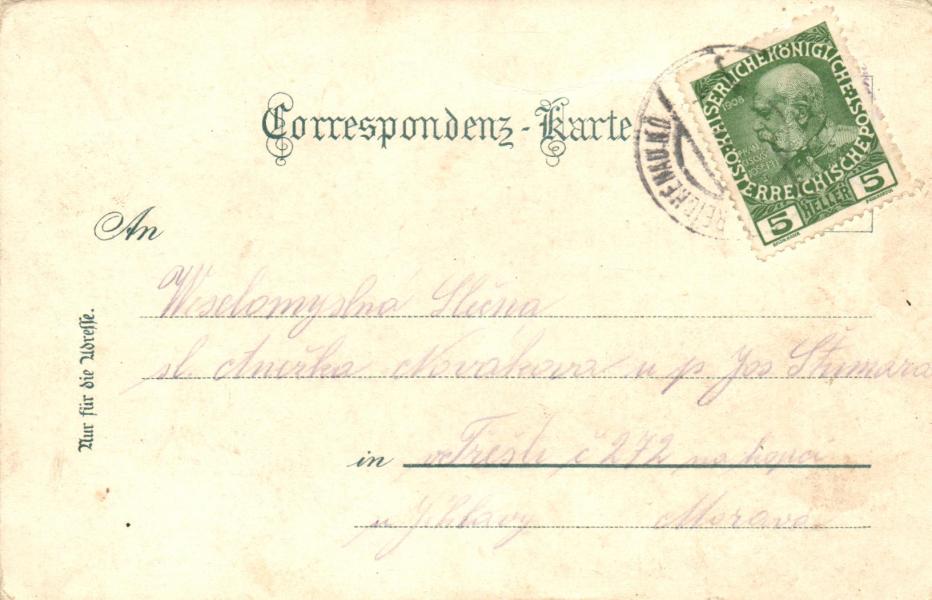 Correspondenz-Karte
REICHENAU N.Ö.
KAISERLICHE KÖNIGLICHE ÖSTERREICHISCHE POST
1908
5 HELLER 5
An
Slečna
sl. Anežka Novákova u p. Jos
in Třešti č 272 na
u Jihlavy Morava
Nur für die Adresse.